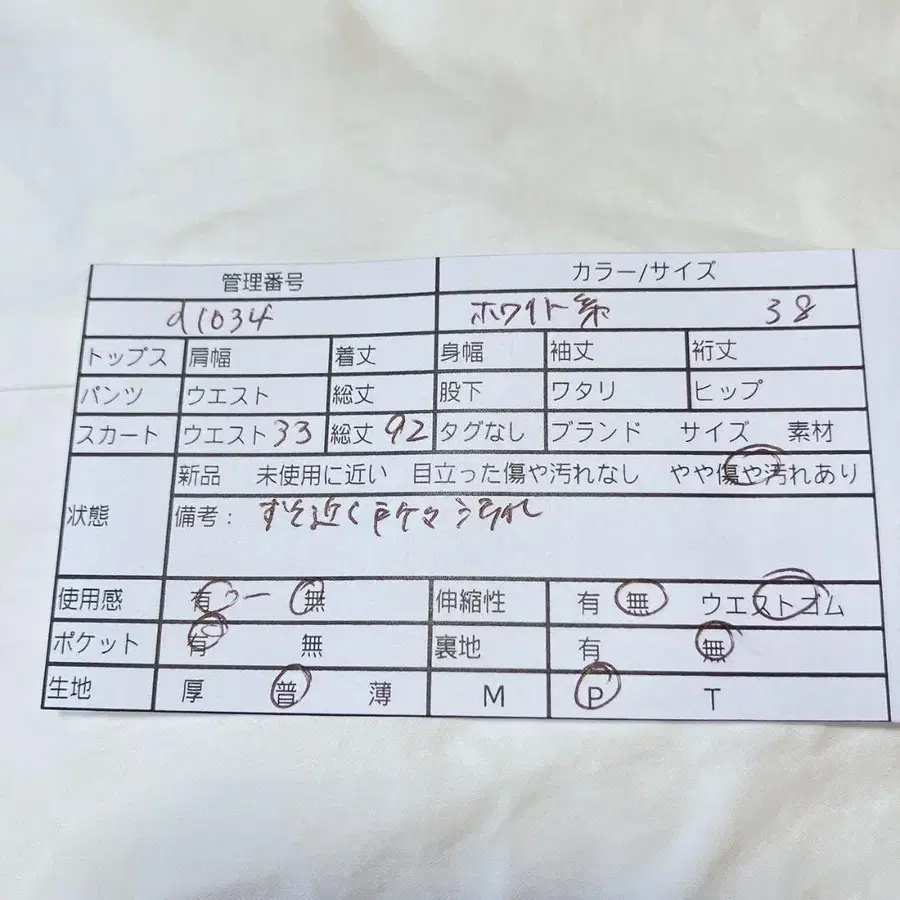 管理番号 カラー/サイズ
d1034 ホワイト系 38
トップス 肩幅 着丈 身幅 袖丈 裄丈
パンツ ウエスト 総丈 股下 ワタリ ヒップ
スカート ウエスト 33 総丈 92 タグなし ブランド サイズ 素材
新品 未使用に近い 目立った傷や汚れなし やや傷や汚れあり
状態 備考: すそ近く 汚れ
使用感 有 無 伸縮性 有 無 ウエストゴム
ポケット 有 無 裏地 有 無
生地 厚 普 薄 M P T